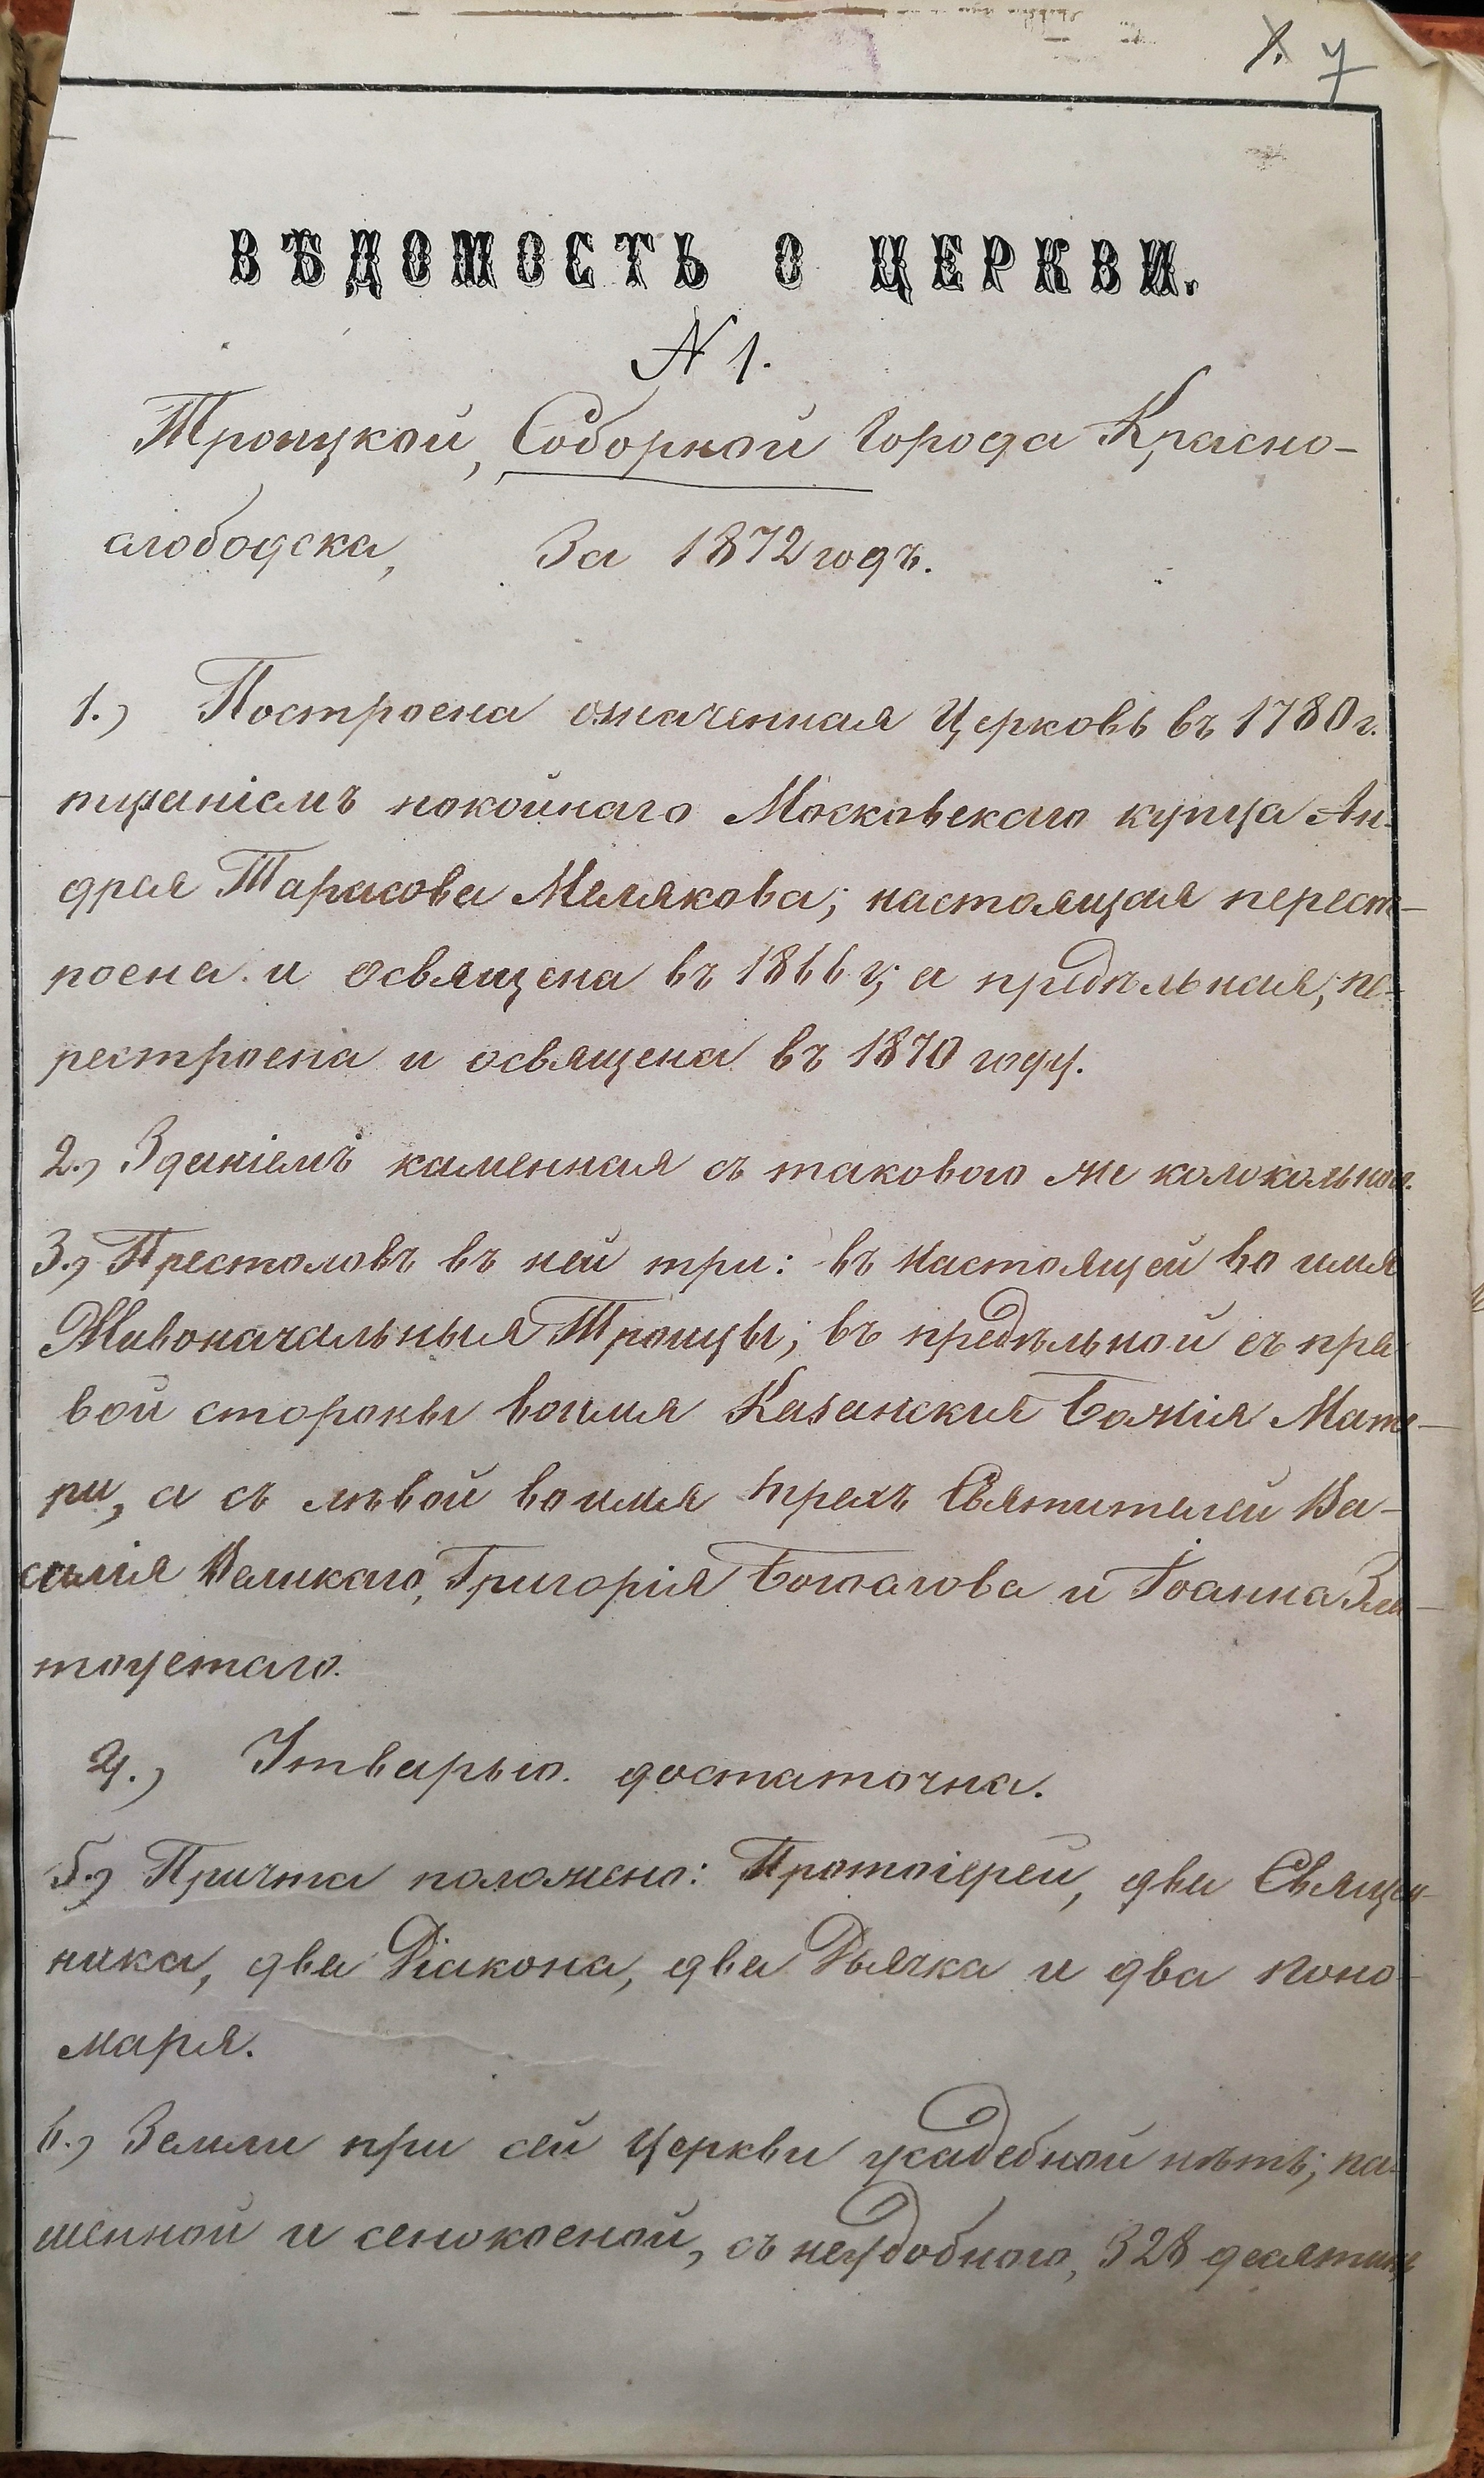 1. 7
ВѢДОМОСТЬ О ЦЕРКВИ.
N 1.
Троицкой, Соборной города Красно-
слободска, За 1872 годъ.
1.) Построена означенная Церковь въ 1780 г.
тщаніемъ покойнаго Московскаго купца Ан-
дрея Тарасова Мелякова; настоящая перест-
роена и освящена въ 1866 г; а предѣльная, пе-
рестроена и освящена въ 1870 году.
2.) Зданіемъ каменная съ таковою же колокольнею.
3.) Престоловъ въ ней три: въ настоящей во имя
Живоначальныя Троицы; въ предѣльной съ пра
вой стороны во имя Казанскія Божія Мате-
ри, а съ лѣвой во имя трехъ Святителей Ва-
силія Великаго, Григорія Богослова и Іоанна Зла-
тоустаго.
4.) Утварью достаточна.
5.) Причта положено: Протоіерей, два Священ-
ника, два Діакона, два Дьячка и два поно-
маря.
6.) Земли при сей Церкви усадебной нѣтъ; па-
шенной и сенокосной, съ неудобною, 328 десятинъ